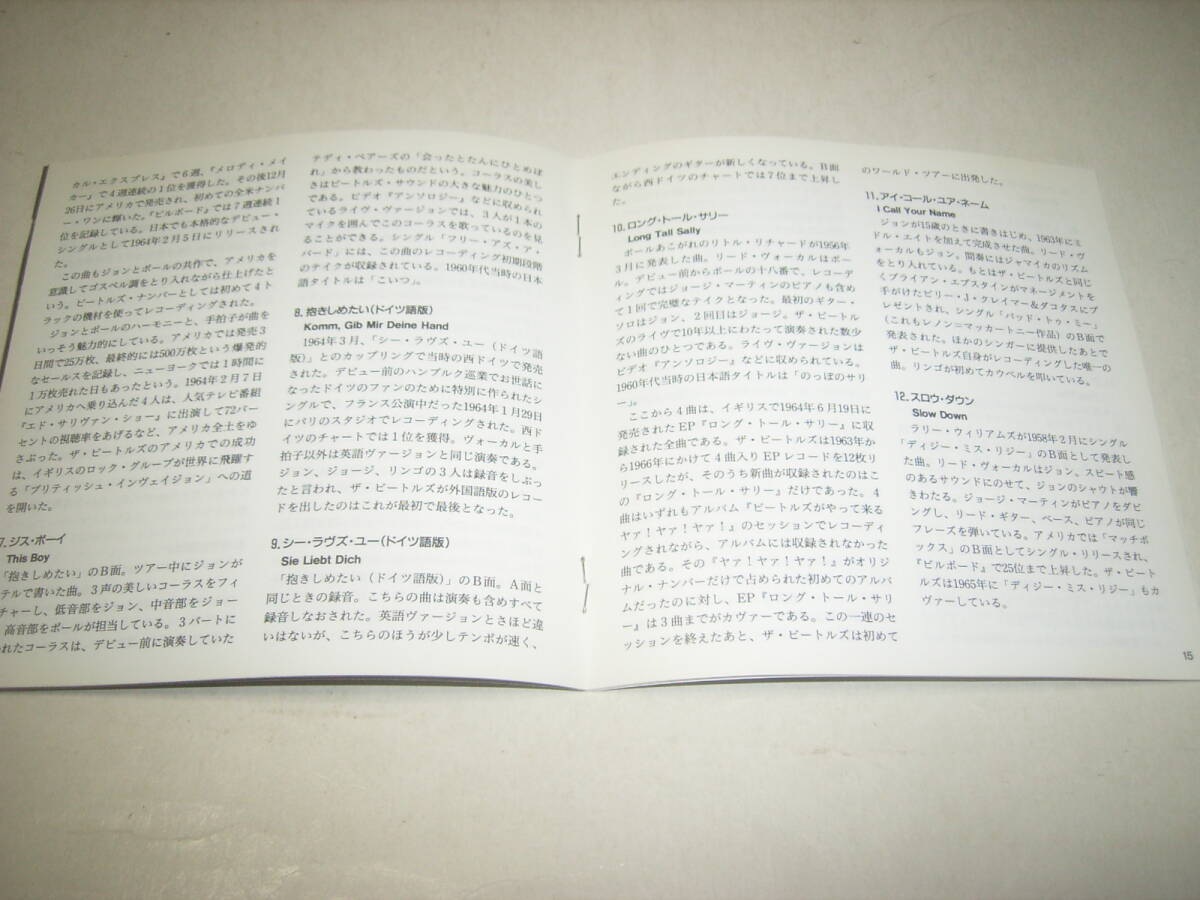 カル・エクスプレス』で6週、『メロディ・メイ
カー』で4週連続の1位を獲得した。その後12月
26日にアメリカで発売され、初めての全米ナンバ
ー・ワンに輝いた。『ビルボード』では7週連続1
位を記録している。日本でも本格的なデビュー・
シングルとして1964年2月5日にリリースされ
た。
この曲もジョンとポールの共作で、アメリカを
意識してゴスペル調をとり入れながら仕上げたと
いう。ビートルズ・ナンバーとしては初めて4ト
ラックの機材を使ってレコーディングされた。
ジョンとポールのハーモニーと、手拍子が曲を
いっそう魅力的にしている。アメリカでは発売3
日間で25万枚、最終的には500万枚という爆発的
なセールスを記録し、ニューヨークでは1時間に
1万枚売れた日もあったという。1964年2月7日
にアメリカへ乗り込んだ4人は、人気テレビ番組
『エド・サリヴァン・ショー』に出演して72パー
セントの視聴率をあげるなど、アメリカ全土をゆ
さぶった。ザ・ビートルズのアメリカでの成功
は、イギリスのロック・グループが世界に飛躍す
る「ブリティッシュ・インヴェイジョン」への道
を開いた。
7. ジス・ボーイ
This Boy
「抱きしめたい」のB面。ツアー中にジョンが
テルで書いた曲。3声の美しいコーラスをフィ
チャーし、低音部をジョン、中音部をジョー
高音部をポールが担当している。3パートに
れたコーラスは、デビュー前に演奏していた
テディ・ベアーズの「会ったとたんにひとめぼ
れ」から教わったものだという。コーラスの美し
さはビートルズ・サウンドの大きな魅力のひとつ
である。ビデオ『アンソロジー』などに収められ
ているライヴ・ヴァージョンでは、3人が1本の
マイクを囲んでこのコーラスを歌っているのを見
ることができる。シングル「フリー・アズ・ア・
バード」には、この曲のレコーディング初期段階
のテイクが収録されている。1960年代当時の日本
語タイトルは「こいつ」。
8. 抱きしめたい(ドイツ語版)
Komm, Gib Mir Deine Hand
1964年3月、「シー・ラヴズ・ユー(ドイツ語
版)」とのカップリングで当時の西ドイツで発売
された。デビュー前のハンブルク巡業でお世話に
なったドイツのファンのために特別に作られたシ
ングルで、フランス公演中だった1964年1月29日
にパリのスタジオでレコーディングされた。西ド
イツのチャートでは1位を獲得。ヴォーカルと手
拍子以外は英語ヴァージョンと同じ演奏である。
ジョン、ジョージ、リンゴの3人は録音をしぶっ
たと言われ、ザ・ビートルズが外国語版のレコー
ドを出したのはこれが最初で最後となった。
9. シー・ラヴズ・ユー(ドイツ語版)
Sie Liebt Dich
「抱きしめたい(ドイツ語版)」のB面。A面と
同じときの録音。こちらの曲は演奏も含めすべて
録音しなおされた。英語ヴァージョンとさほど違
いはないが、こちらのほうが少しテンポが速く、
エンディングのギターが新しくなっている。B面
ながら西ドイツのチャートでは7位まで上昇し
た。
10. ロング・トール・サリー
Long Tall Sally
ポールあこがれのリトル・リチャードが1956年
3月に発表した曲。リード・ヴォーカルはポー
ル。デビュー前からポールの十八番で、レコーデ
ィングではジョージ・マーティンのピアノも含め
て1回で完璧なテイクとなった。最初のギター・
ソロはジョン、2回目はジョージ。ザ・ビートル
ズのライヴで10年以上にわたって演奏された数少
ない曲のひとつである。ライヴ・ヴァージョンは
ビデオ『アンソロジー』などに収められている。
1960年代当時の日本語タイトルは「のっぽのサリ
ー」。
ここから4曲は、イギリスで1964年6月19日に
発売されたEP『ロング・トール・サリー』に収
録された全曲である。ザ・ビートルズは1963年か
ら1966年にかけて4曲入りEPレコードを12枚リ
リースしたが、そのうち新曲が収録されたのはこ
の『ロング・トール・サリー』だけであった。4
曲はいずれもアルバム『ビートルズがやって来る
ヤァ!ヤァ!ヤァ!』のセッションでレコーディ
ングされながら、アルバムには収録されなかった
曲である。その『ヤァ!ヤァ!ヤァ!』がオリジ
ナル・ナンバーだけで占められた初めてのアルバ
ムだったのに対し、EP『ロング・トール・サリ
ー』は3曲までがカヴァーである。この一連のセ
ッションを終えたあと、ザ・ビートルズは初めて
のワールド・ツアーに出発した。
11. アイ・コール・ユア・ネーム
I Call Your Name
ジョンが15歳のときに書きはじめ、1963年にミ
ドル・エイトを加えて完成させた曲。リード・ヴ
ォーカルもジョン。間奏にはジャマイカのリズム
をとり入れている。もとはザ・ビートルズと同じ
くブライアン・エプスタインがマネージメントを
手がけたビリー・J・クレイマー&ダコタスにプ
レゼントされ、シングル「バッド・トゥ・ミー」
(これもレノン=マッカートニー作品)のB面で
発表された。ほかのシンガーに提供したあとで
ザ・ビートルズ自身がレコーディングした唯一の
曲。リンゴが初めてカウベルを叩いている。
12. スロウ・ダウン
Slow Down
ラリー・ウィリアムズが1958年2月にシングル
「ディジー・ミス・リジー」のB面として発表し
た曲。リード・ヴォーカルはジョン、スピード感
のあるサウンドにのせて、ジョンのシャウトが響
きわたる。ジョージ・マーティンがピアノをダビ
ングし、リード・ギター、ベース、ピアノが同じ
フレーズを弾いている。アメリカでは「マッチボ
ックス」のB面としてシングル・リリースされ、
『ビルボード』で25位まで上昇した。ザ・ビート
ルズは1965年に「ディジー・ミス・リジー」もカ
ヴァーしている。
15